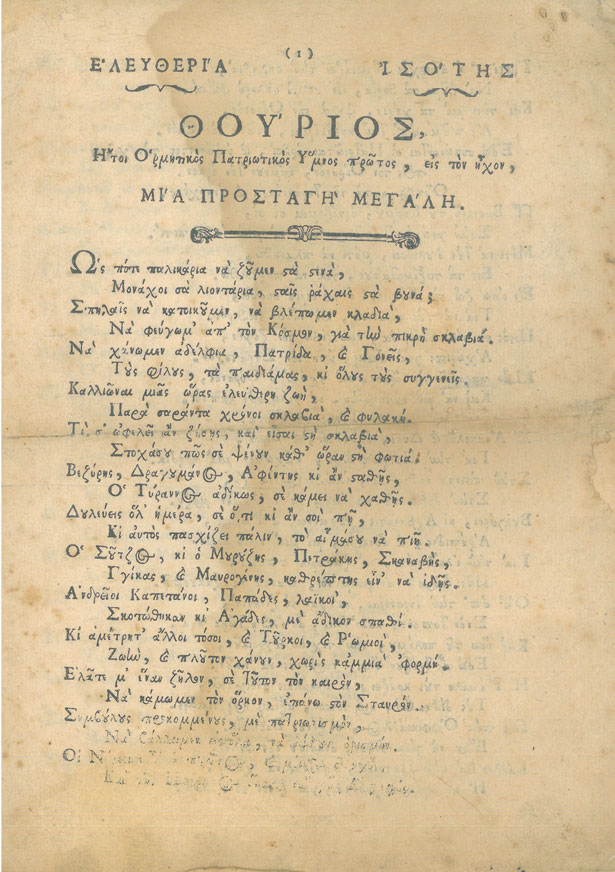 (1)
ἘΛΕΥΘΕΡΊΑ ἸΣΌΤΗΣ
ΘΟΎΡΙΟΣ,
Ἤτοι Ὁρμητικὸς Πατριωτικὸς Ὕμνος πρῶτος, εἰς τὸν ἦχον,
ΜΊΑ ΠΡΟΣΤΑΓῊ ΜΕΓΆΛΗ.
Ὣς πότε παλικάρια νὰ ζοῦμεν στὰ στενά,
Μονάχοι σὰ λιοντάρια, σταῖς ράχαις στὰ βουνά;
Σπηλαῖς νὰ κατοικοῦμεν, νὰ βλέπωμεν κλαδιά,
Νὰ φεύγωμ' ἀπ' τὸν Κόσμον, γιὰ τὴν πικρὴ σκλαβιά.
Νὰ χάνωμεν ἀδέλφια, Πατρίδα, καὶ Γονεῖς,
Τοὺς φίλους, τὰ παιδιάμας, κι ὅλους τοὺς συγγενεῖς.
Καλλιῶναι μιᾶς ὥρας ἐλεύθερη ζωή,
Παρὰ σαράντα χρόνοι σκλαβιά, καὶ φυλακή.
Τί σ' ὠφελεῖ ἂν ζήσῃς, καὶ εἶσαι στὴ σκλαβιά,
Στοχάσου πῶς σὲ ψένουν καθ' ὥραν στὴ φωτιά.
Βεζύρης, Δραγουμάνος, Ἀφέντης κι ἂν σταθῇς,
Ὁ Τύραννος ἀδίκως, σὲ κάμει νὰ χαθῇς.
Δουλεύεις ὅλ' ἡμέρα, σὲ ὅ,τι κι ἂν σοὶ πῇ,
Κι αὐτὸς πασχίζει πάλιν, τὸ αἷμάσου νὰ πιῇ.
Ὁ Σοῦτζος, κι ὁ Μουρούζης, Πετράκης, Σκαναβῆς,
Γγίκας, καὶ Μαυρογένης, καθρέπτης εἶν' νὰ ἰδῇς.
Ἀνδρεῖοι Καπετάνοι, Παπάδες, λαϊκοί,
Σκοτώθηκαν κι Ἀγάδες, μὲ ἄδικον σπαθί.
Κι ἀμέτρητ' ἄλλοι τόσοι, καὶ Τοῦρκοι, καὶ Ῥωμιοί,
Ζωὴν, καὶ πλοῦτον χάνουν, χωρὶς κἀμμιὰ 'φορμή.
Ἐλᾶτε μ' ἕναν ζῆλον, σὲ τοῦτον τὸν καιρόν,
Νὰ κάμωμεν τὸν ὅρκον, ἐπάνω στὸν Σταυρόν.
Συμβούλους προκομμένους, μὲ πατριωτισμόν,
Νὰ βάλλωμεν εἰς ὅλα, νὰ δίδουν ὁρισμόν.
Οἱ Νόμοι